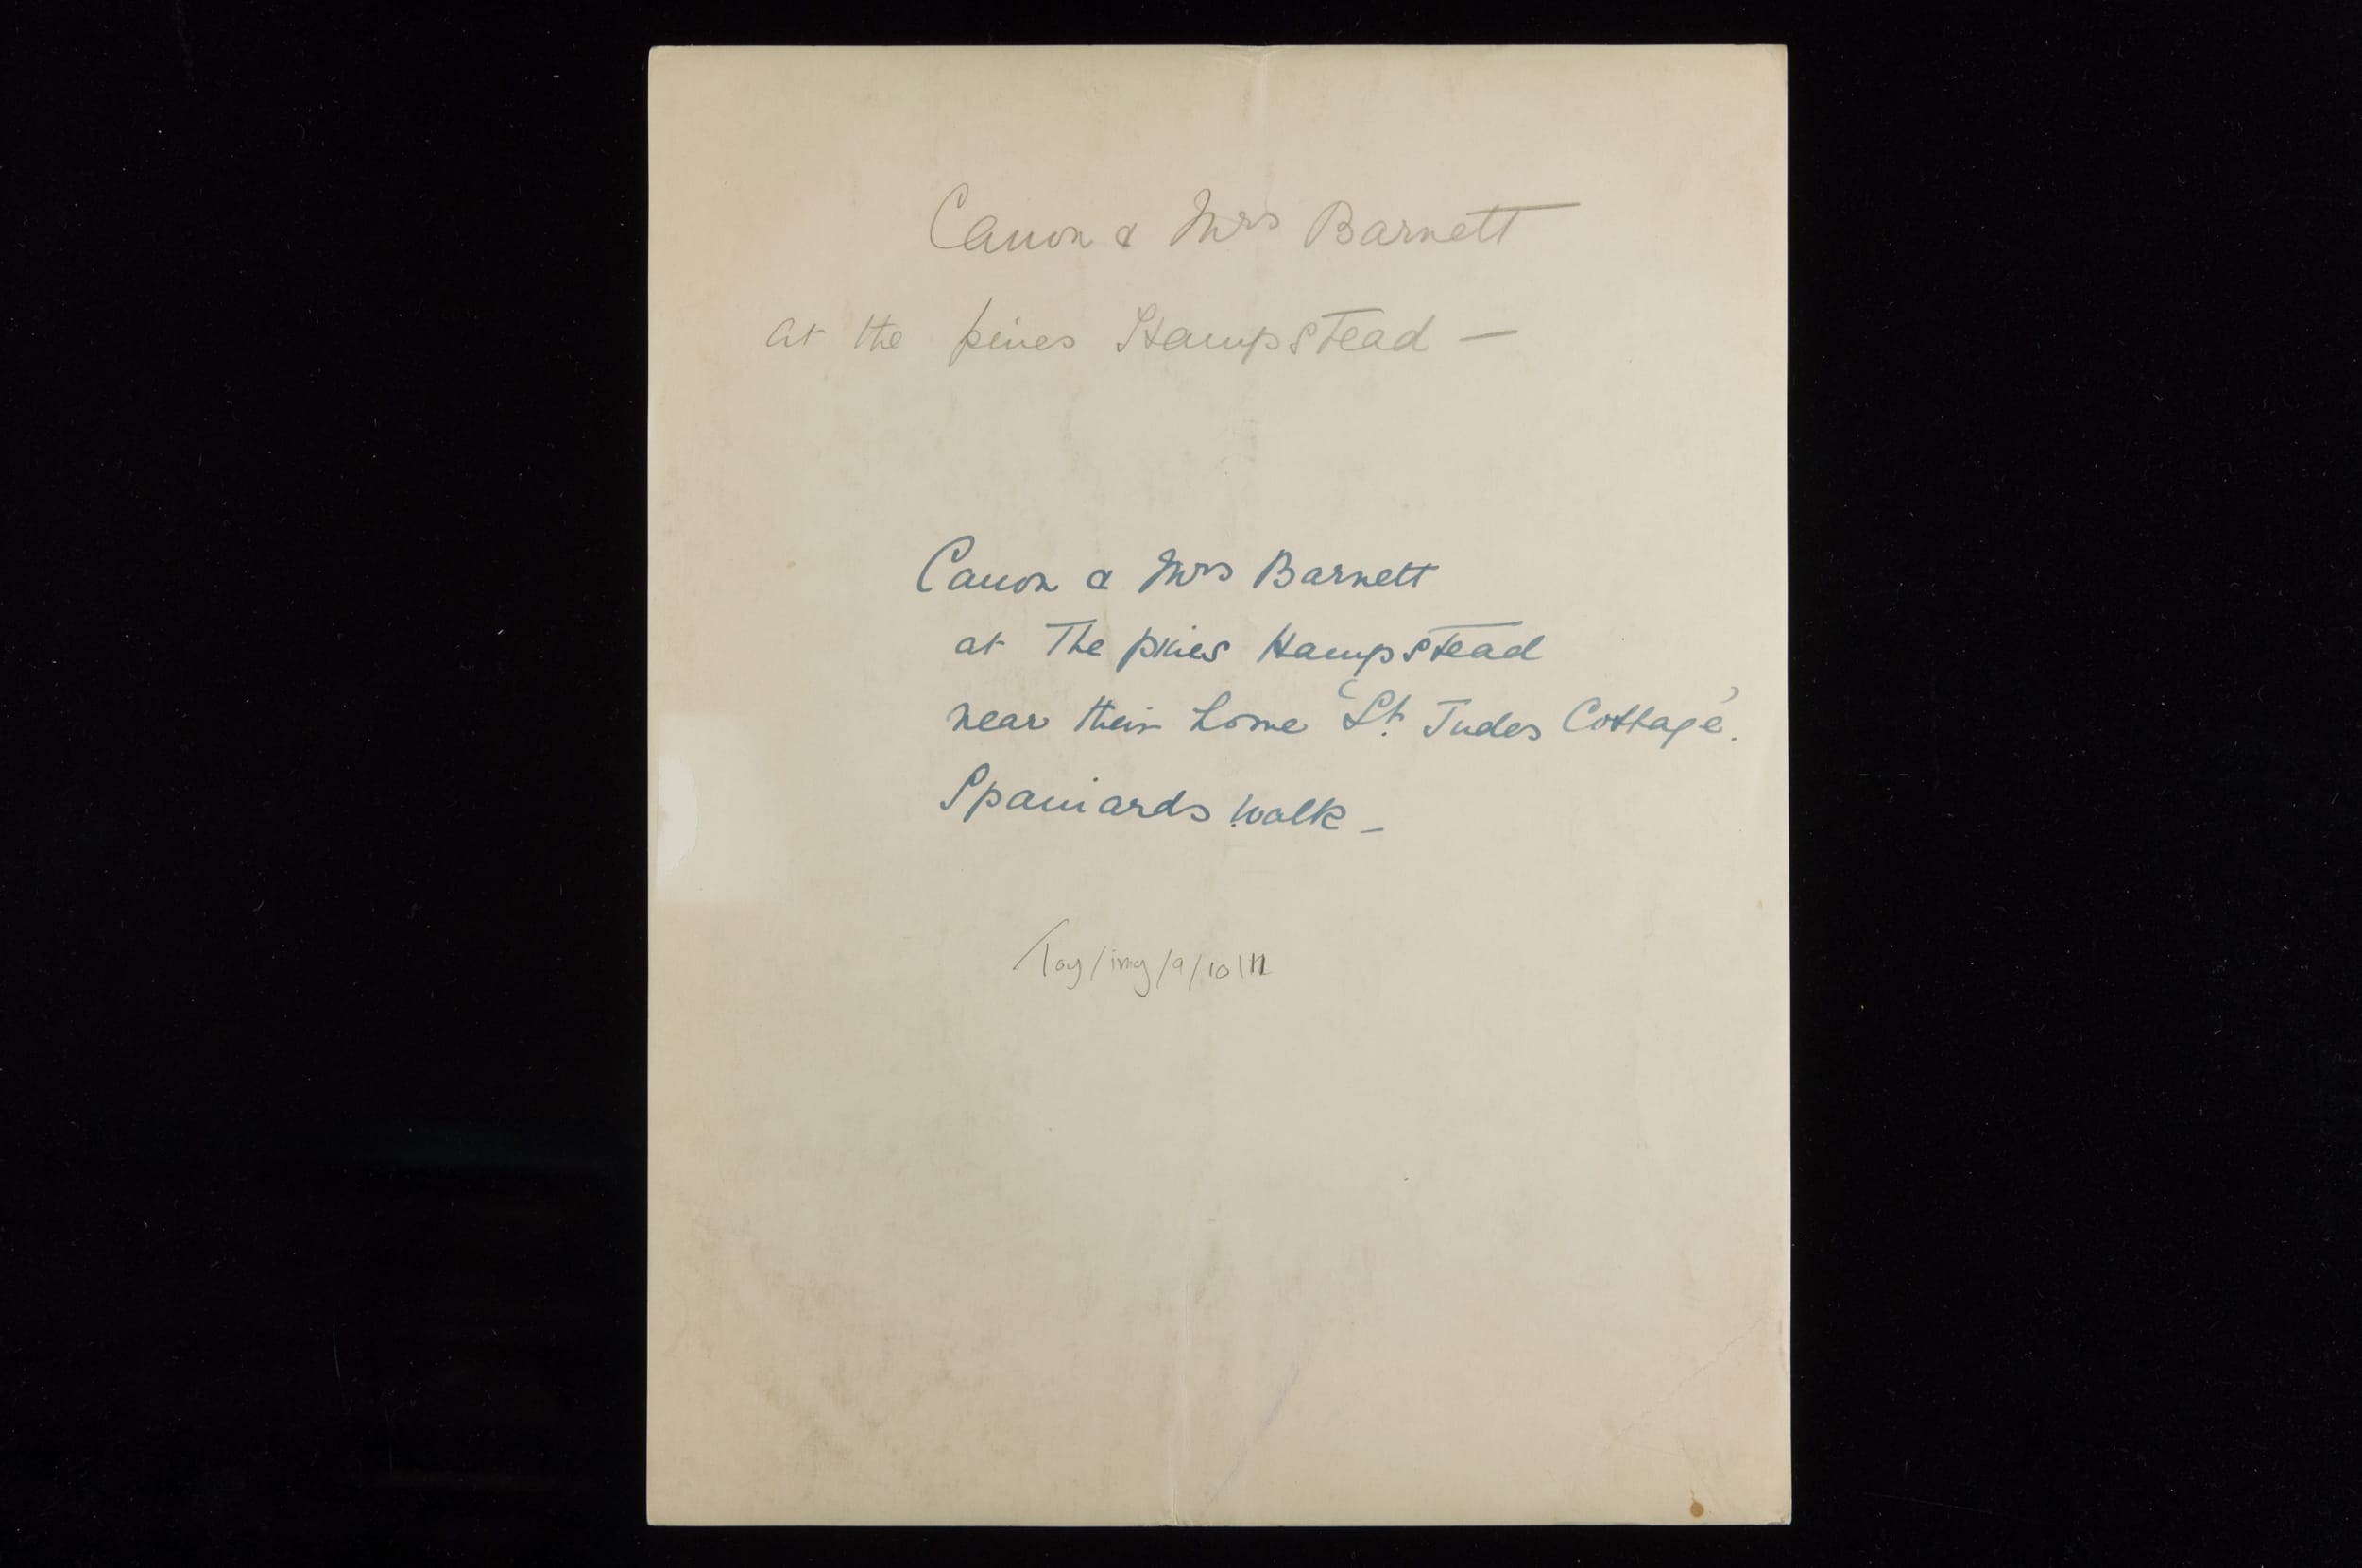 Canon & Mrs Barnett
at the pines Hampstead —
Canon & Mrs Barnett
at The pines Hampstead
near their home 'St. Judes Cottage'.
Spaniards Walk –
Toy/img/9/10/11